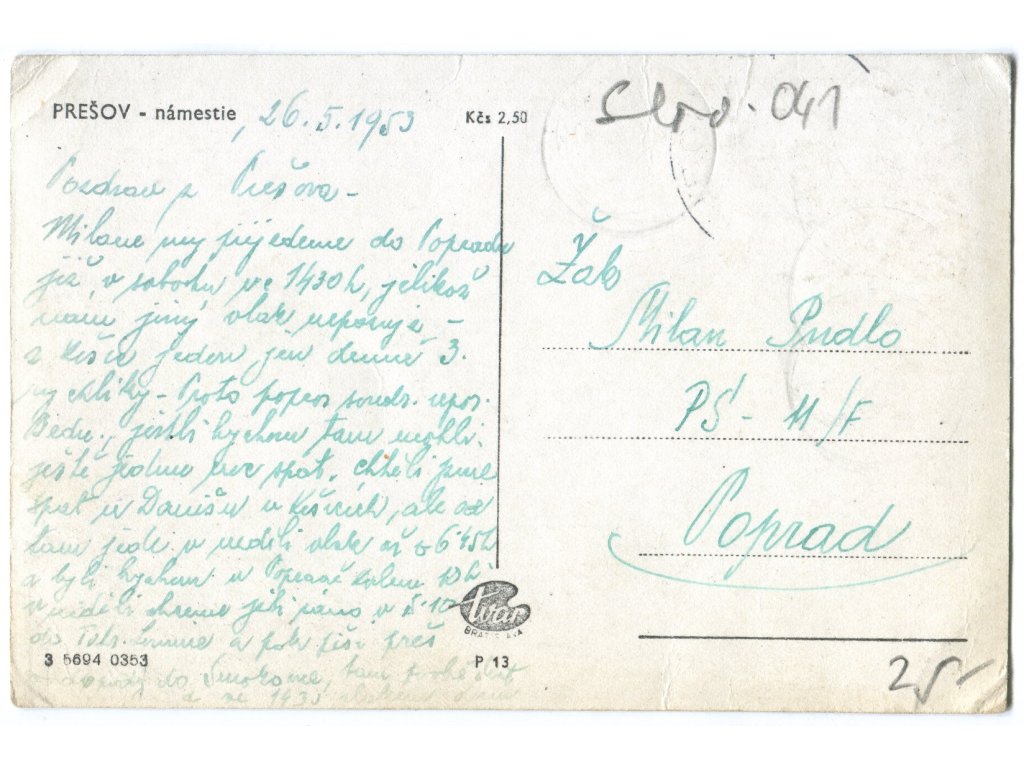 PREŠOV - námestie
26.5.1953
Kčs 2,50
Pozdrav z Prešova -
Milane my přijedeme do Popradu
již v sobotu ve 1430 h, jelikož
nám jiný vlak nepasuje -
z Košic jeden jen denně 3.
rychlíky - Proto popros souds.
jestli bychom tam mohli
ještě jednu noc spát. chtěli jsme
spát u Danišů v Košicích, ale
tam jede v neděli vlak až o 645h
a byli bychom v Popradě kolem 10h
v neděli chceme jeti ráno v
do Tatr. a pak pěši přes
do Smokovce, tam
a ve 1435 vlakem
041
Žák
Milan Pudlo
PŠ - 11/F
Poprad
tvar
BRATISLAVA
3 5694 0353
P 13
25-